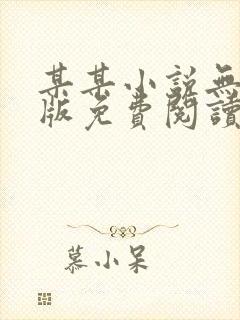 某某小說無
版免費閱讀
慕小呆